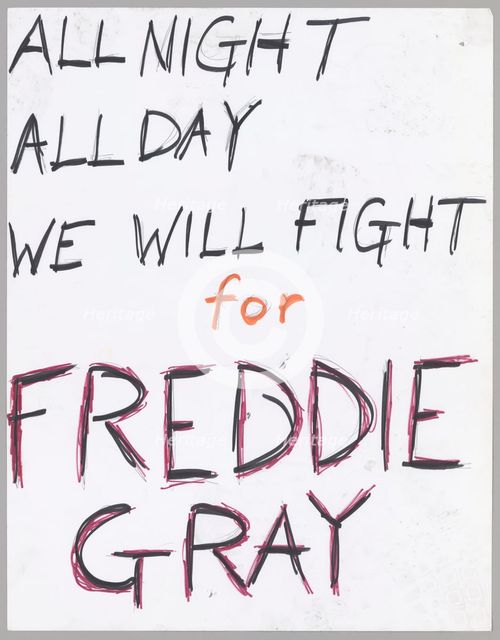 ALL NIGHT
ALL DAY
WE WILL FIGHT
for
FREDDIE
GRAY
Heritage Heritage
Heritage Heritage
Heritage Heritage